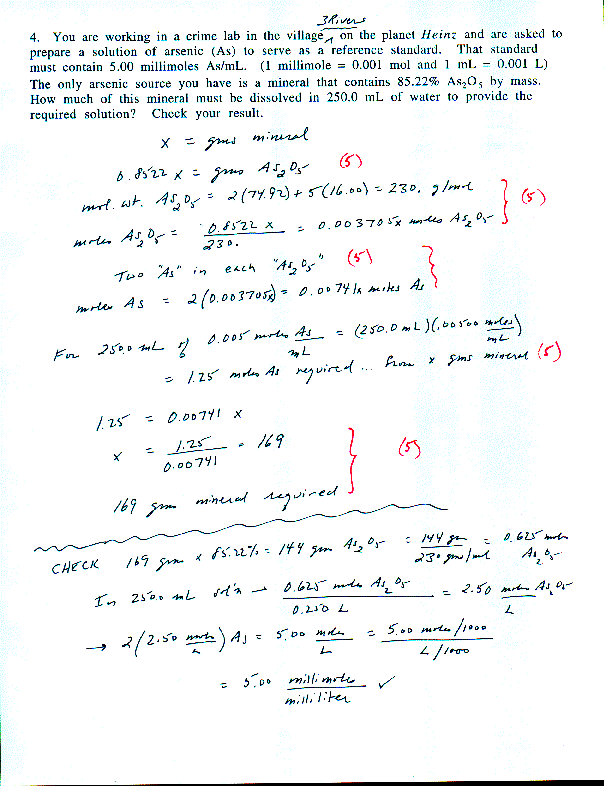 3Rivers
4. You are working in a crime lab in the village ^ on the planet Heinz and are asked to
prepare a solution of arsenic (As) to serve as a reference standard. That standard
must contain 5.00 millimoles As/mL. (1 millimole = 0.001 mol and 1 mL = 0.001 L)
The only arsenic source you have is a mineral that contains 85.22% As₂O₅ by mass.
How much of this mineral must be dissolved in 250.0 mL of water to provide the
required solution? Check your result.
x = gms mineral
0.8522 x = gms As₂O₅ (5)
mol. wt. As₂O₅ = 2(74.92) + 5(16.00) = 230. g/mol
moles As₂O₅ = 0.8522 x / 230. = 0.003705x moles As₂O₅ (5)
Two "As" in each "As₂O₅" (5)
moles As = 2(0.003705x) = 0.00741x moles As
For 250.0 mL of 0.005 moles As / mL = (250.0 mL)(.00500 moles / mL)
= 1.25 moles As required ... from x gms mineral (5)
1.25 = 0.00741 x
x = 1.25 / 0.00741 = 169 (5)
169 gms mineral required
CHECK 169 gms x 85.22% = 144 gms As₂O₅ = 144 gm / 230 gm/mol = 0.625 moles As₂O₅
In 250.0 mL sol'n → 0.625 moles As₂O₅ / 0.250 L = 2.50 moles As₂O₅ / L
→ 2(2.50 moles / L) As = 5.00 moles / L = 5.00 moles/1000 / L/1000
= 5.00 millimoles / milliliter ✓